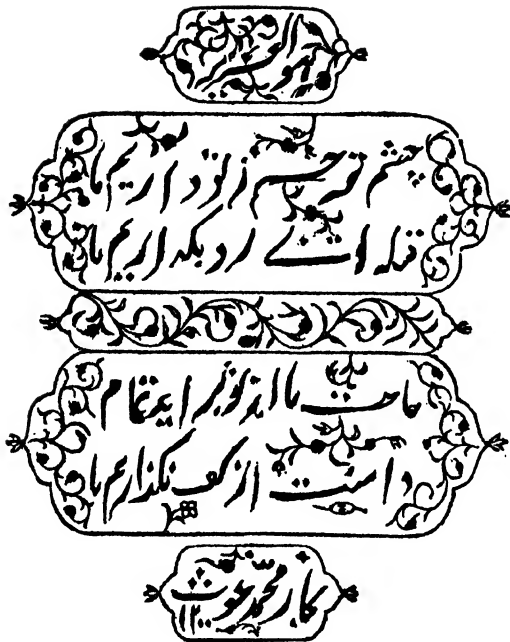 چشم ترحم ز تو داریم ما
قبله توئے رو بکه اریم ما
حاجت ما از تو بر اید تمام
دامنت از کف نگذاریم ما
کار محمد غوث